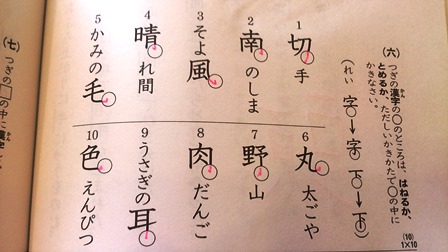 (六) つぎの漢字の○のところは、はねるか、
とめるか、ただしいかきかたで○の中に
かきなさい。
(れい 字→字 下→下)
(10)
1×10
1 切手
2 南のしま
3 そよ風
4 晴れ間
5 かみの毛
6 丸太ごや
7 野山
8 肉だんご
9 うさぎの耳
10 色えんぴつ
(七) つぎの□の中に